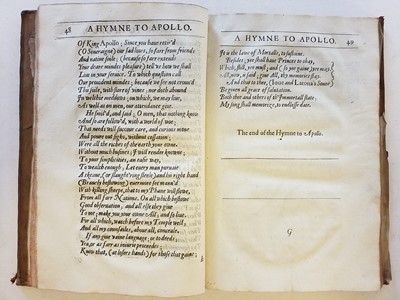 48 A HYMNE TO APOLLO.
Of King Apollo; Since you have
(O Soveraigne) our sad lives, so far from friends
And native soile; (because so far extends
Your deare mindes pleasure) tell us how we shall
Live in your service. To which question call
Our provident mindes; because we see not
The soile, with store of vines, nor doth abound
In meadows; on which, we may live,
As well as on men, our attendance give.
He smil'd, and said; O men, that nothing know
And so are follow'd, with a world of wo;
That needs will succour care, and curious mone
And poure out sighs, without cessation;
Were all the riches of the earth your owne.
Without much business, I will render knowne;
To your simplicities, an easie way,
To wealth enough; Let every man purvaie
A skeane, (or slaught'ring steele) and his right hand
(Bravely bestowing) evermore see man'd
With killing sheepe, that to my Phane will
From all Nations. On all which bestow
Good observation; and all else they give
To me; make you your owne All; and so live.
For all which, watch before my Temple well;
And all my counsailes, above all, conceale.
If any give vaine language; or to deedes;
Yea, or as far as injurie proceedes;
Know that, (at hands) for those that gaine;
A HYMNE TO APOLLO. 49
It is the lawe of Mortalls, to sustaine.
Besides, ye shall have Princes to obay,
Which, still, ye must; and (so yee gaine) may:
All, now, is said; give All, thy memories stay.
And to thee (Jove and Latona's Sonne)
Be given all grace of salutation.
Both thee and others of th' Immortall state
My song shall memorize, to endlesse date.
The end of the Hymne to Apollo.
G